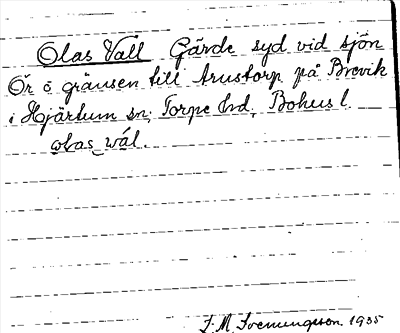 Olas Vall Gärde syd vid sjön
Ör å gränsen till Arustorp på Brevik
i Hjärtum sn, Torpe hd, Bohusl.
olas vál.
J. M. Svenungsson 1935